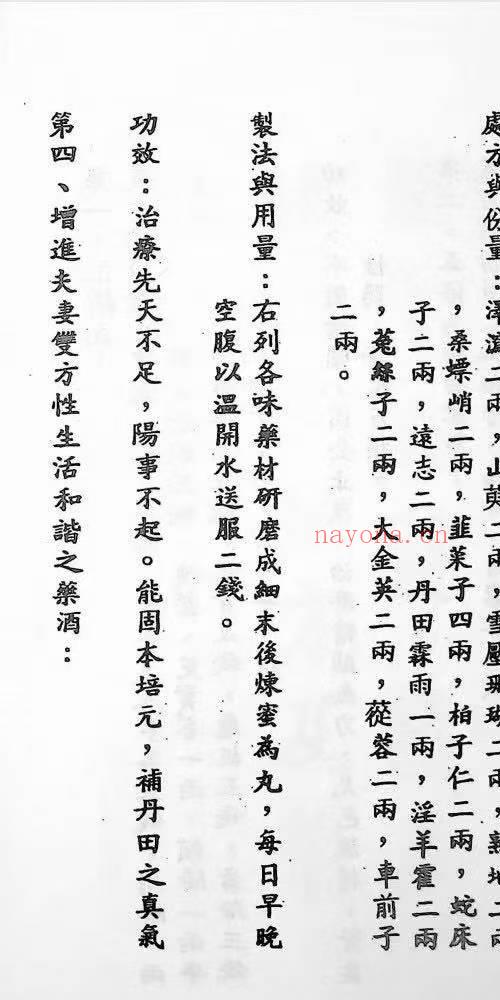 處方與份量：澤瀉二兩，山萸二兩，雪壓珊瑚二兩，熟地二兩
，桑螵峭二兩，韭菜子四兩，柏子仁二兩，蛇床
子二兩，遠志二兩，丹田霖雨一兩，淫羊霍二兩
，菟絲子二兩，大金英二兩，蓯蓉二兩，車前子
二兩。
製法與用量：右列各味藥材研磨成細末後煉蜜為丸，每日早晚
空腹以溫開水送服二錢。
功效：治療先天不足，陽事不起。能固本培元，補丹田之真氣
第四、增進夫妻雙方性生活和諧之藥酒：
nayona.cn